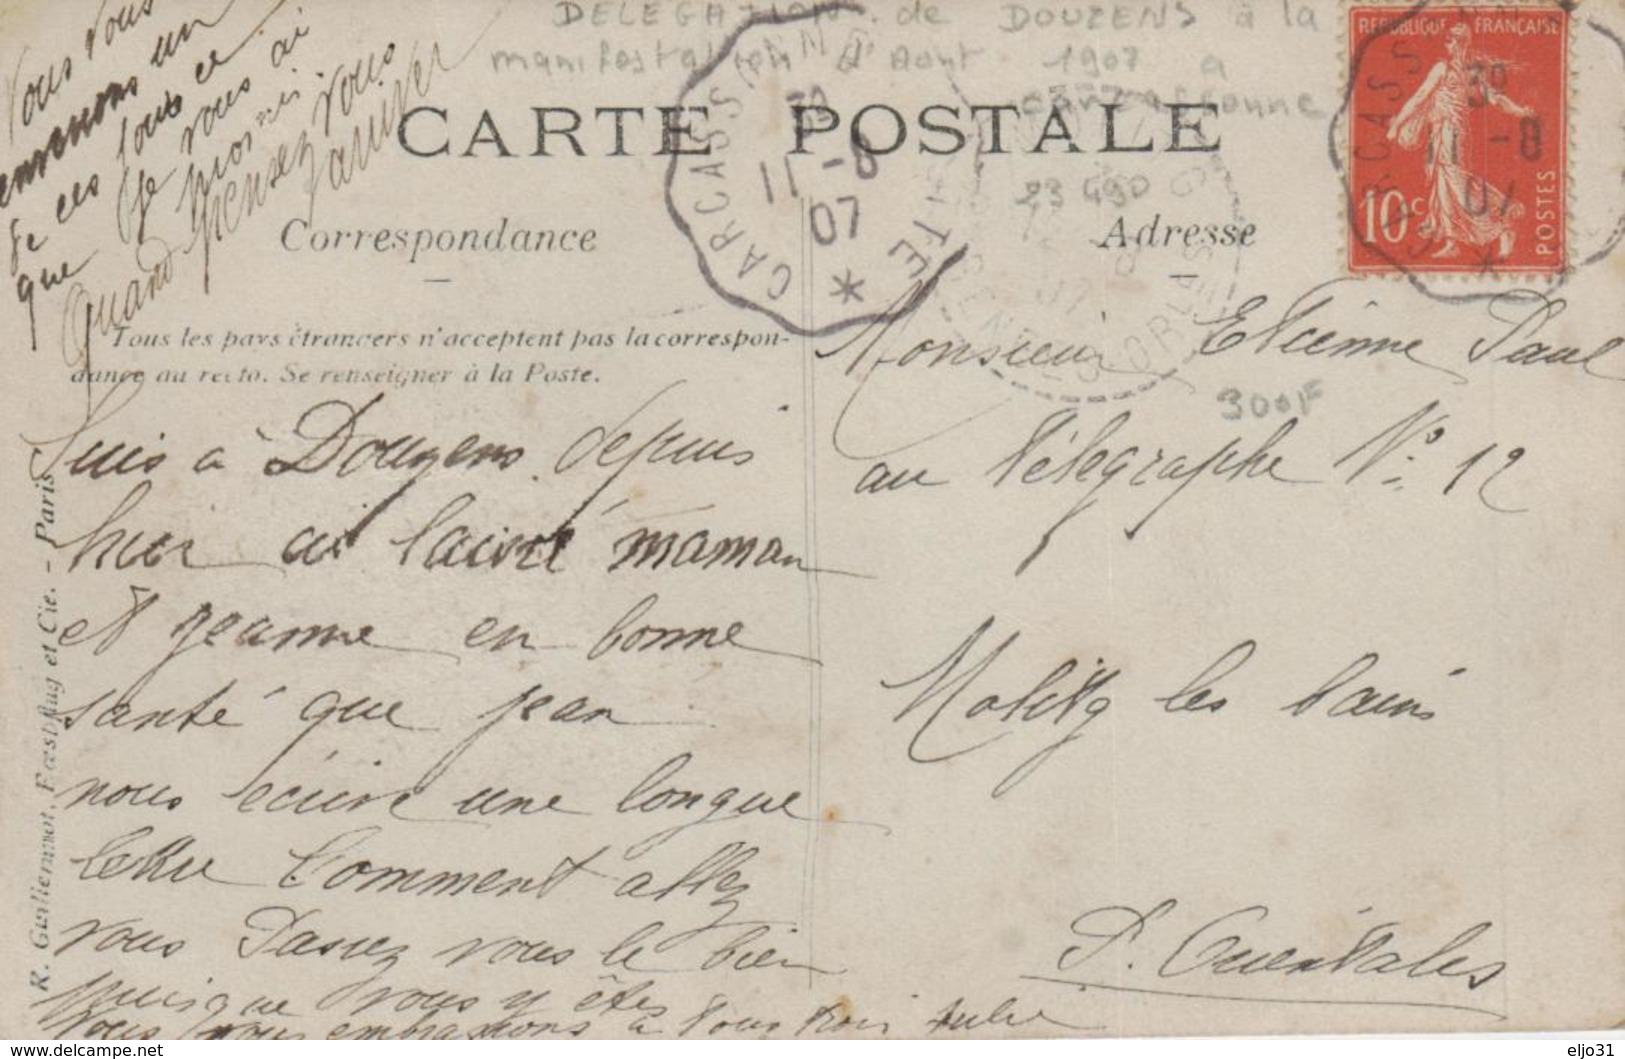 DELEGATION de DOUZENS à la
manifestation d'Aout 1907 a
carcassonne
CARTE POSTALE
23 490
Correspondance
Adresse
REPUBLIQUE FRANÇAISE
10c
POSTES
CARCASSONNE
3º
11 - 8
07
CARCASS
3º
11 - 8
07
Tous les pays étrangers n'acceptent pas la correspon-
dance au recto. Se renseigner à la Poste.
R. Guilleminot, Bœspflug et Cie. - Paris
300F
Monsieur Etienne Paul
au Télégraphe Nº 12
Molitg les bains
P. Orientales
Suis à Douzens depuis
hier ai laissé maman
et jeanne en bonne
santé que jean
nous écrive une longue
lettre Comment allez
vous Passez vous le bien
puisque vous y êtes
Nous vous embrassons à tous trois
Vous vous
un
que je vous ai
Quand pensez vous
arriver
eljo31